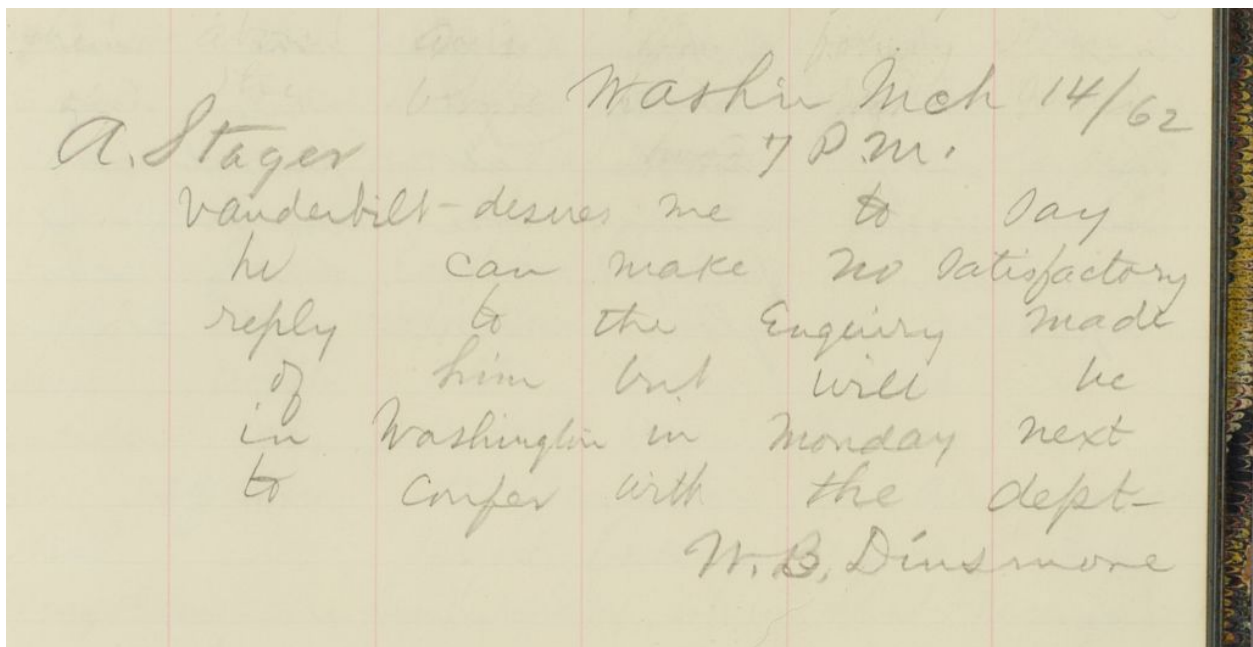 Washn Mch 14/62
A. Stager 7 P.M.
Vanderbilt-desires me to say
he can make no satisfactory
reply to the Enquiry made
of him but will be
in Washington in Monday next
to confer with the dept-
W. B. Dinsmore